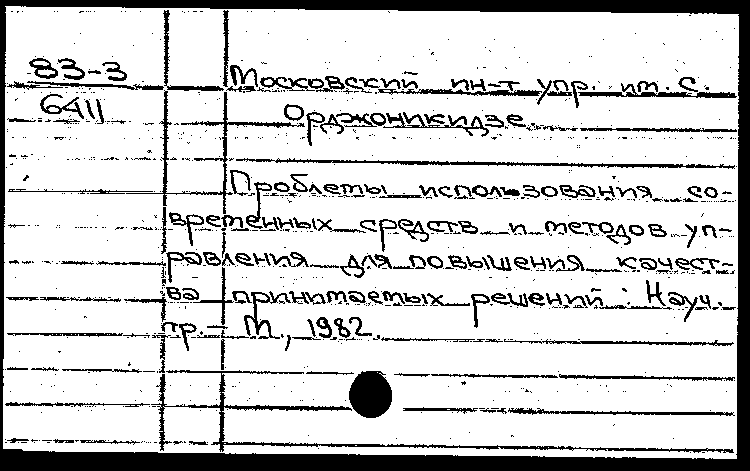 83-3
6411
Московский ин-т упр. им. С.
Орджоникидзе.
Проблемы использования со-
временных средств и методов уп-
равления для повышения качест-
ва принимаемых решений : Науч.
тр. - М., 1982.